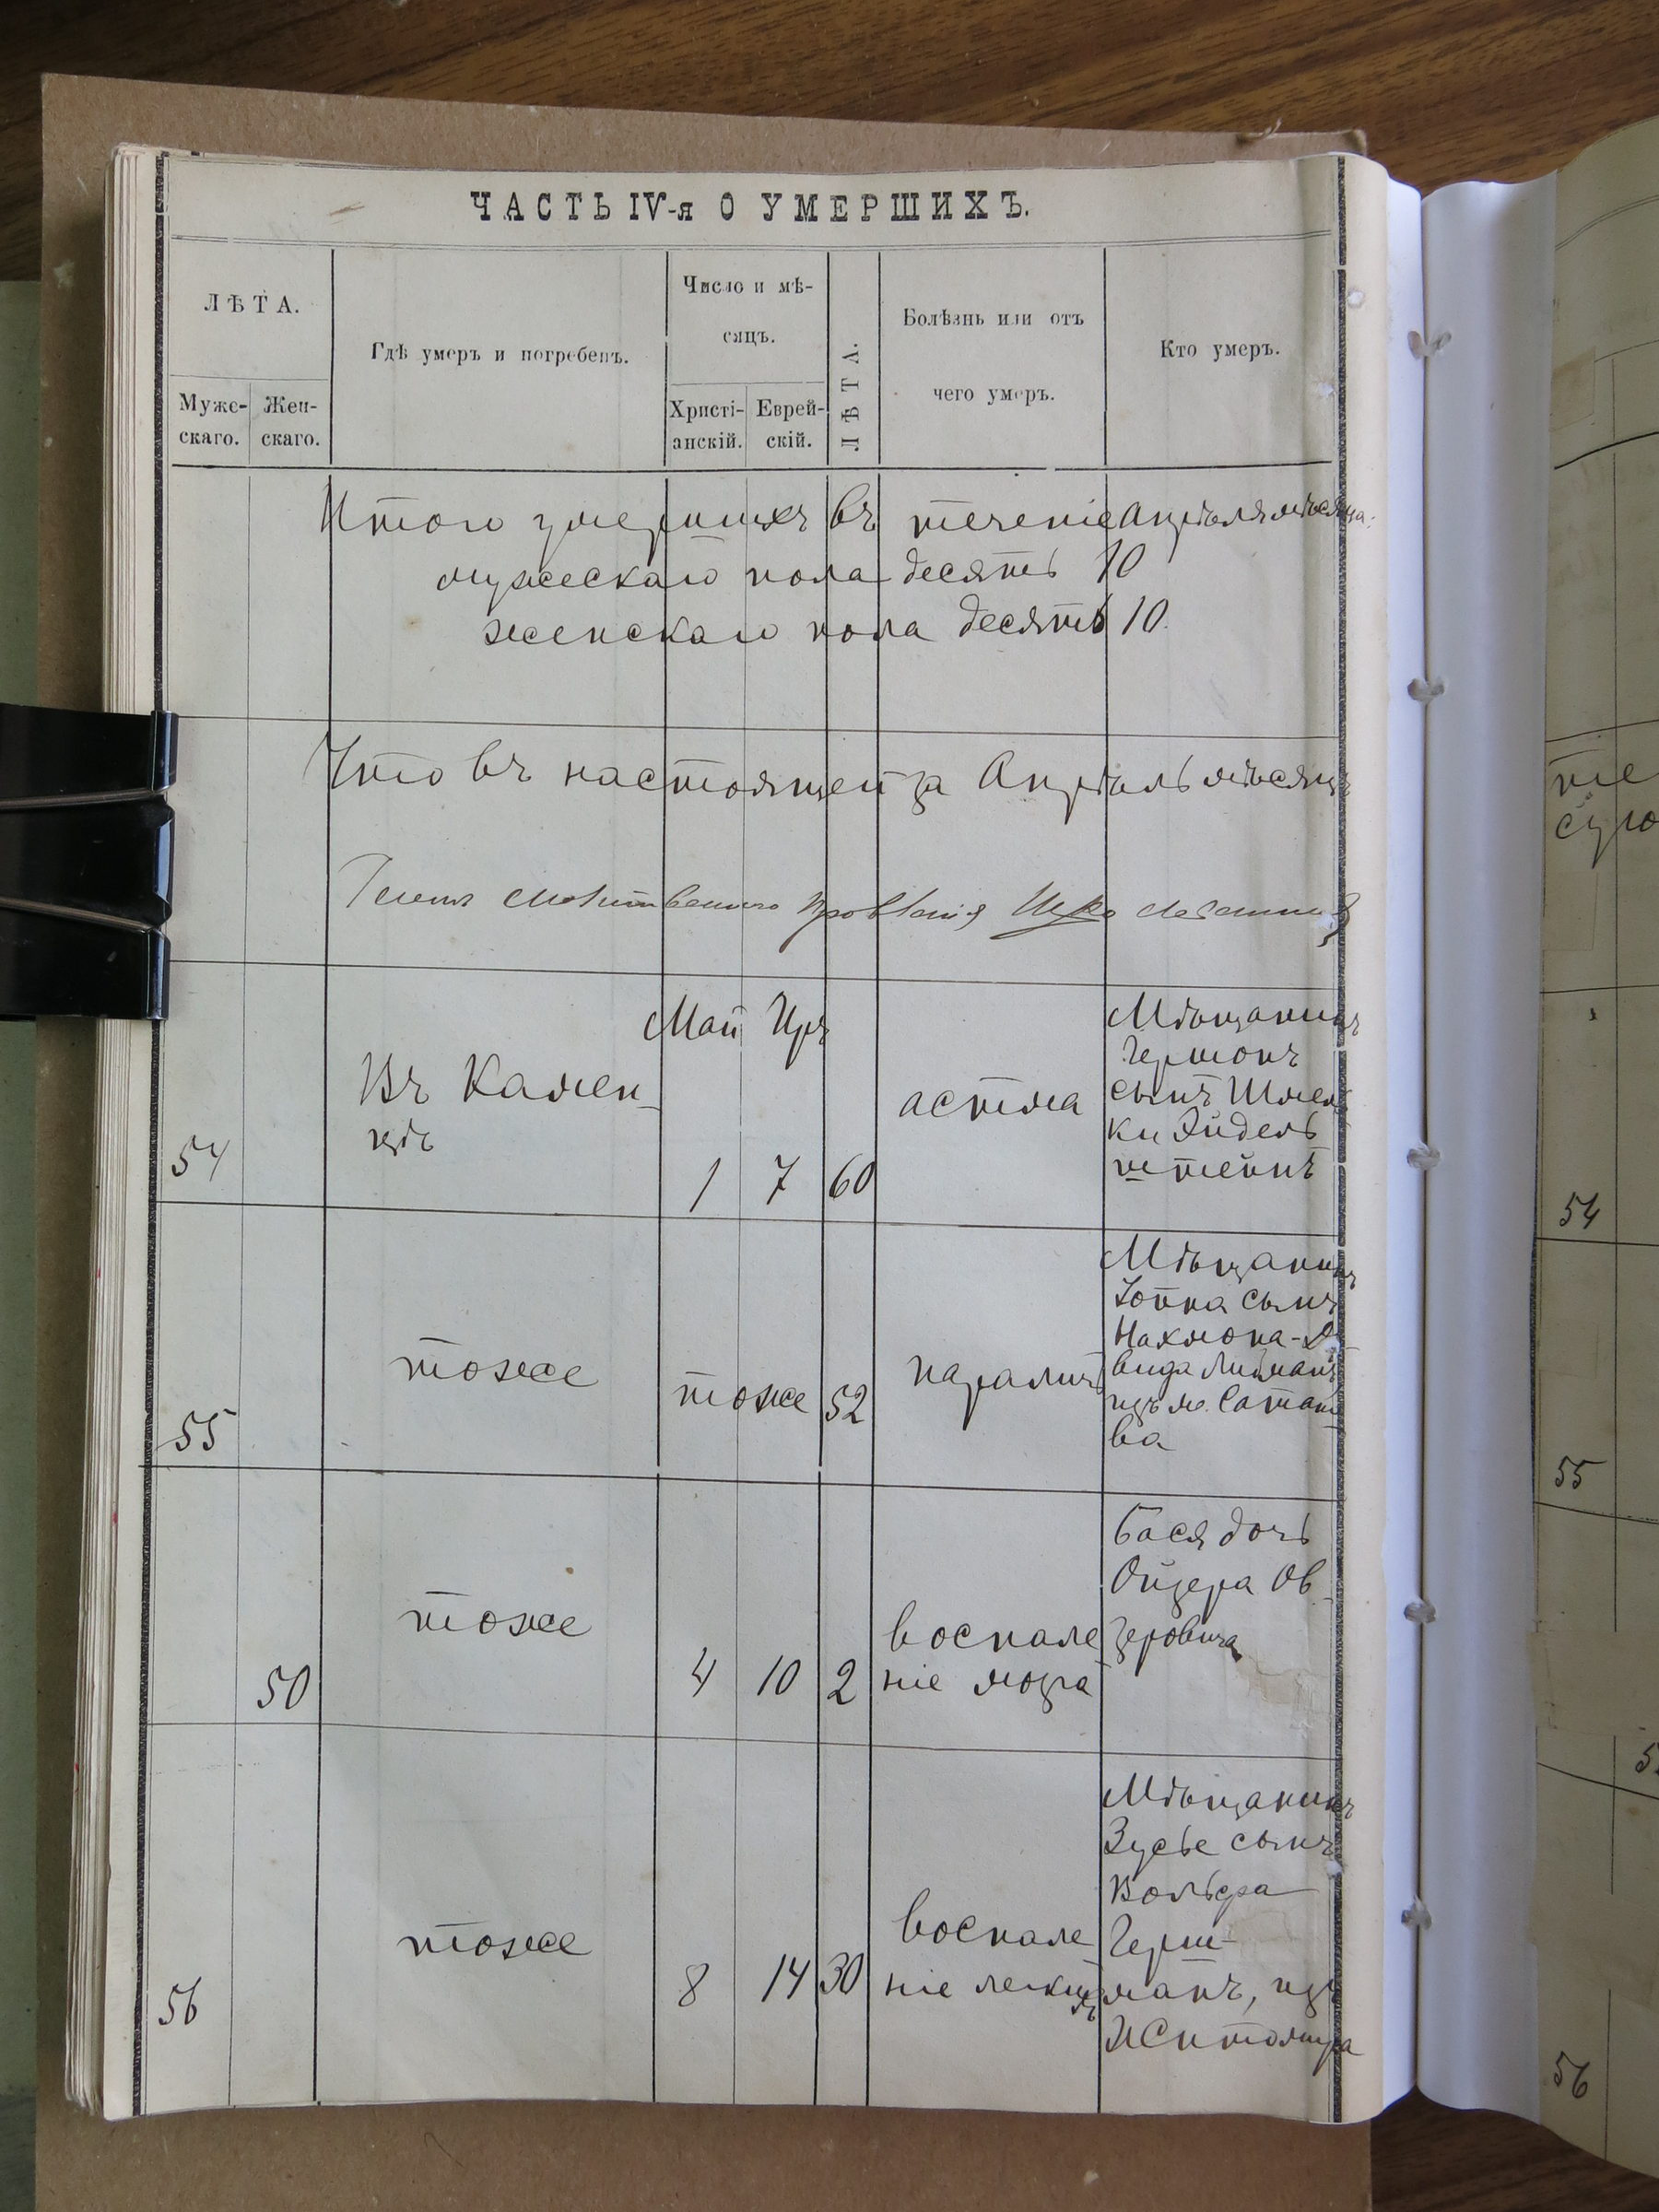 ЧАСТЬ IV-я О УМЕРШИХЪ.
ЛѢТА.
Мужс-
скаго.
Жен-
скаго.
Гдѣ умеръ и погребенъ.
Число и мѣ-
сяцъ.
Христі-
анскій.
Еврей-
скій.
ЛѢТА.
Болѣзнь или отъ
чего умеръ.
Кто умеръ.
Итого умершихъ въ теченіе Апрѣля мѣсяца:
мужескаго пола десять 10
женскаго пола десять 10.
Что въ настоящей за Апрѣль мѣсяцъ
Членъ Молитвеннаго Правленія
54
Въ Камен-
цѣ
Май
1
Иръ
7
60
астма
Мѣщанинъ
Гершонъ
сынъ Шмель
ки Эйдель
штейнъ
55
тоже
тоже
52
параличъ
Мѣщанинъ
Іойна сынъ
Нахмона-Д
вида Лидманъ
изъ м. Сатано
ва
50
тоже
4
10
2
воспале
ніе мозга
Бася дочь
Ойзера Ов-
зеровича
56
тоже
8
14
30
воспале
ніе легкихъ
Мѣщанинъ
Зусье сынъ
Вольфа
Герш-
манъ, изъ
Житомира
те
сую
54
55
56